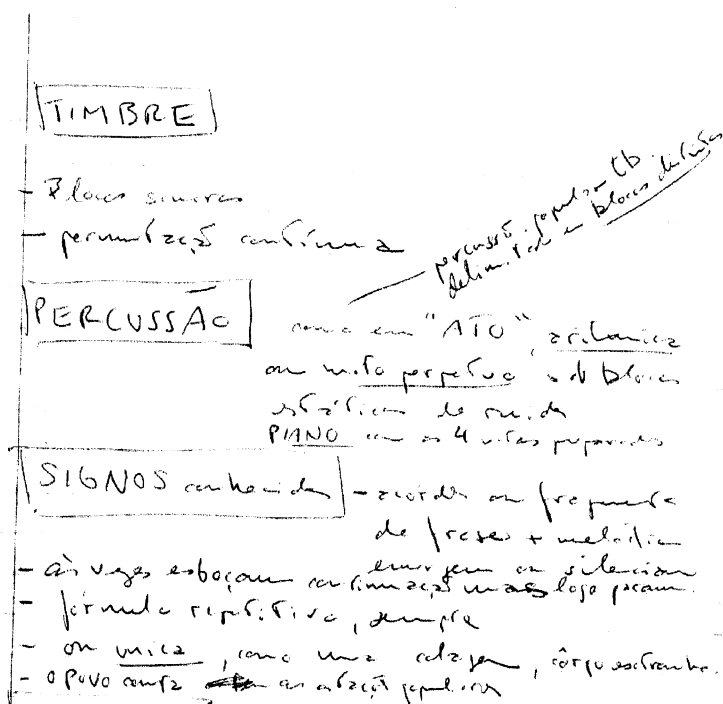 TIMBRE
- Blocos sonoros
- permutação contínua
percussão popular Cb
delimitado em blocos distintos
PERCUSSÃO
como em "ATO", aritmica
ou moto perpetuo
estáticos de ruido
PIANO com as 4 preparadas
SIGNOS conhecidos - acordes ou fragmentos
de frases + melodia
emergem ou silenciam
- às vezes esboçam continuação mas logo param.
- fórmula repetitiva, sempre
- ou unica, como uma colagem, corpo estranho.
- o Povo canta populares